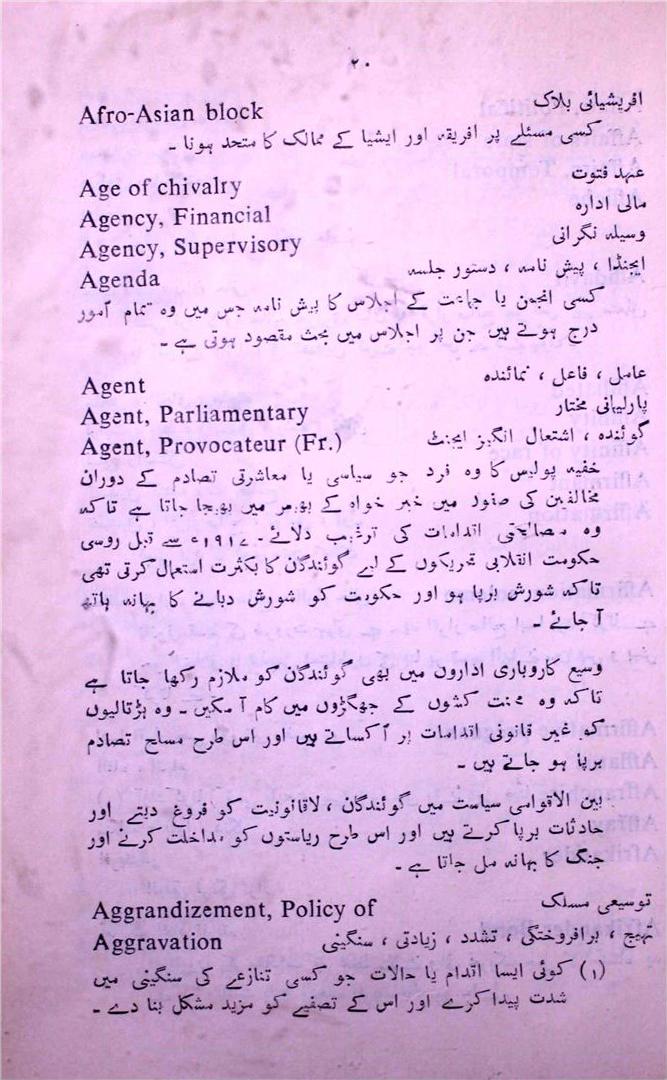 ۲۰
Afro-Asian block افریشیائی بلاک
کسی مسئلے پر افریقہ اور ایشیا کے ممالک کا متحد ہونا ۔
Age of chivalry عہد فتوت
Agency, Financial مالی ادارہ
Agency, Supervisory وسیلہ نگرانی
Agenda ایجنڈا ، پیش نامہ ، دستور جلسہ
کسی انجمن یا جماعت کے اجلاس کا پیش نامہ جس میں وہ تمام امور
درج ہوتے ہیں جن پر اجلاس میں بحث مقصود ہوتی ہے ۔
Agent عامل ، فاعل ، نمائندہ
Agent, Parliamentary پارلیمانی مختار
Agent, Provocateur (Fr.) گوئندہ ، اشتعال انگیز ایجنٹ
خفیہ پولیس کا وہ فرد جو سیاسی یا معاشرتی تصادم کے دوران
مخالفین کی صفوں میں خیر خواہ کے بھیس میں بھیجا جاتا ہے تاکہ
وہ اقدامات کی ترغیب دلائے ۔ ۱۹۱۷ء سے قبل روسی
حکومت انقلابی تحریکوں کے لیے گوئندگن کا بکثرت استعمال کرتی تھی
تاکہ شورش برپا ہو اور حکومت کو شورش دبانے کا بہانہ ہاتھ
آ جائے ۔
وسیع کاروباری اداروں میں بھی گوئندگن کو ملازم رکھا جاتا ہے
تاکہ وہ محنت کشوں کے جھگڑوں میں کام آ سکیں ۔ وہ ہڑتالیوں
کو غیر قانونی اقدامات پر اکساتے ہیں اور اس طرح مسلح تصادم
برپا ہو جاتے ہیں ۔
بین الاقوامی سیاست میں گوئندگن ، لاقانونیت کو فروغ دیتے اور
حادثات برپا کرتے ہیں اور اس طرح ریاستوں کو مداخلت کرنے اور
جنگ کا بہانہ مل جاتا ہے ۔
Aggrandizement, Policy of توسیعی مسلک
Aggravation تہیج ، برافروختگی ، تشدد ، زیادتی ، سنگینی
(۱) کوئی ایسا اقدام یا حالات جو کسی تنازعے کی سنگینی میں
شدت پیدا کرے اور اس کے تصفیے کو مزید مشکل بنا دے ۔